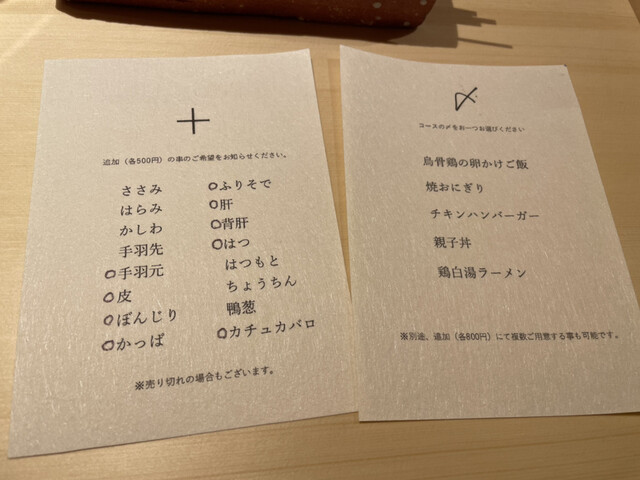 +
追加（各500円）の串のご希望をお知らせください。
ささみ
はらみ
かしわ
手羽先
○手羽元
○皮
○ぼんじり
○かっぱ
○ふりそで
○肝
○背肝
○はつ
はつもと
ちょうちん
鴨葱
○カチュカバロ
※売り切れの場合もございます。
〆
コースの〆をお一つお選びください
烏骨鶏の卵かけご飯
焼おにぎり
チキンハンバーガー
親子丼
鶏白湯ラーメン
※別途、追加（各800円）にて複数ご用意する事も可能です。